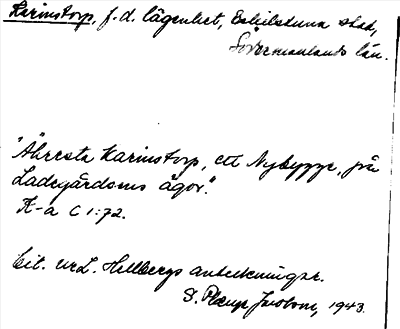 Karinstorp, f.d. lägenhet, Eskilstuna stad,
Södermanlands län.
"Åhresta Karinstorp, ett Nybygge, på
Ladugårdsens ägor."
K-a C 1:72.
Cit. ur L. Hellbergs anteckningar.
S. Jacobson, 1943.